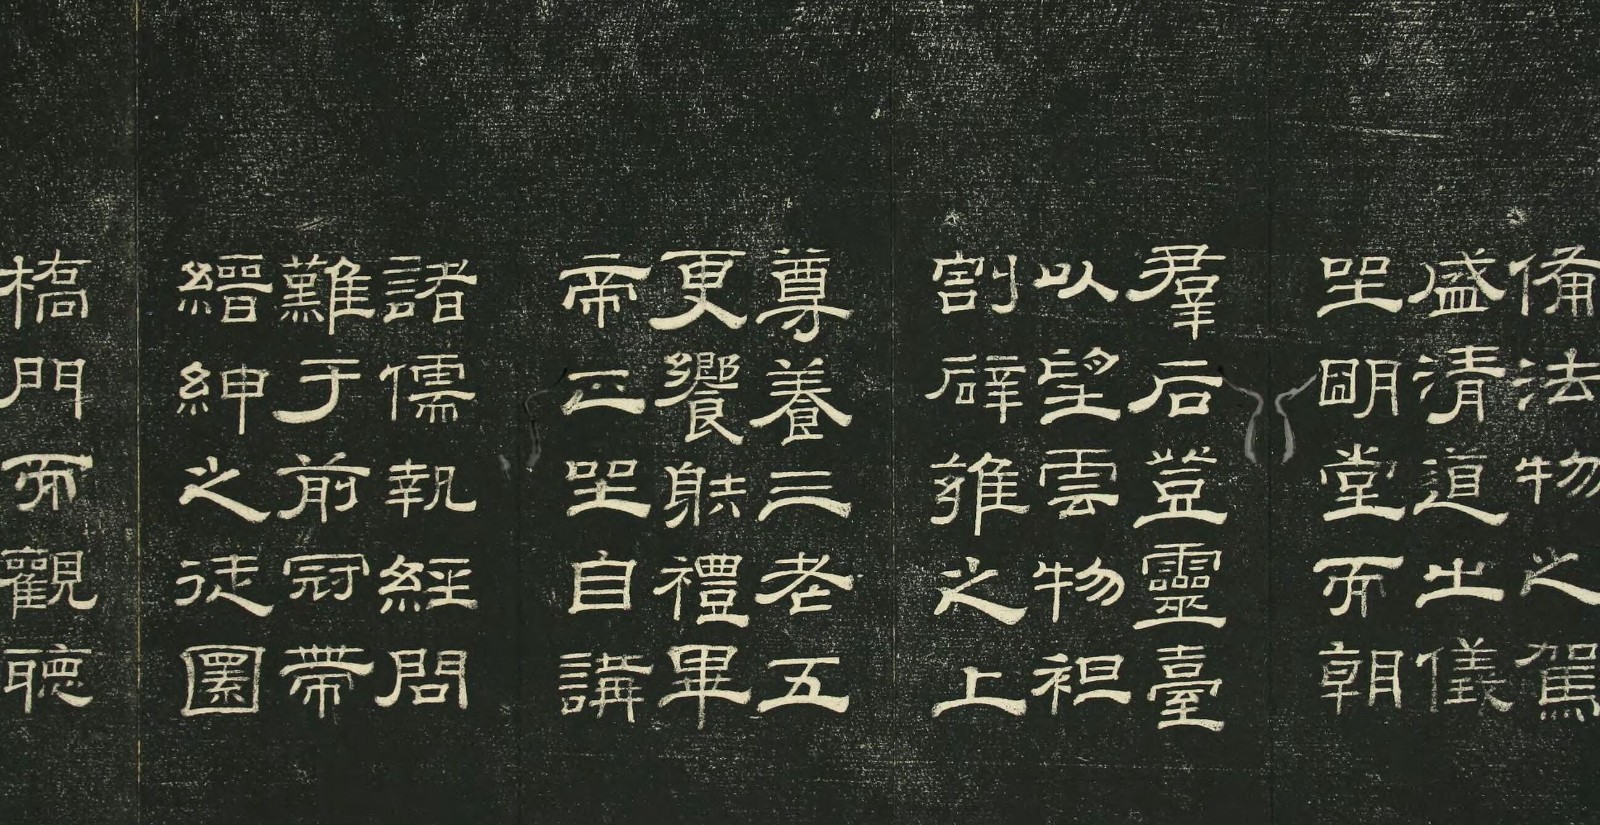 備法物之駕
盛清道之儀
坐朙堂而朝
羣后登靈臺
以望雲物袒
割辟雍之上
尊養三老五
更饗射禮畢
帝正坐自講
諸儒執經問
難于前冠帶
縉紳之徒圜
橋門而觀聽